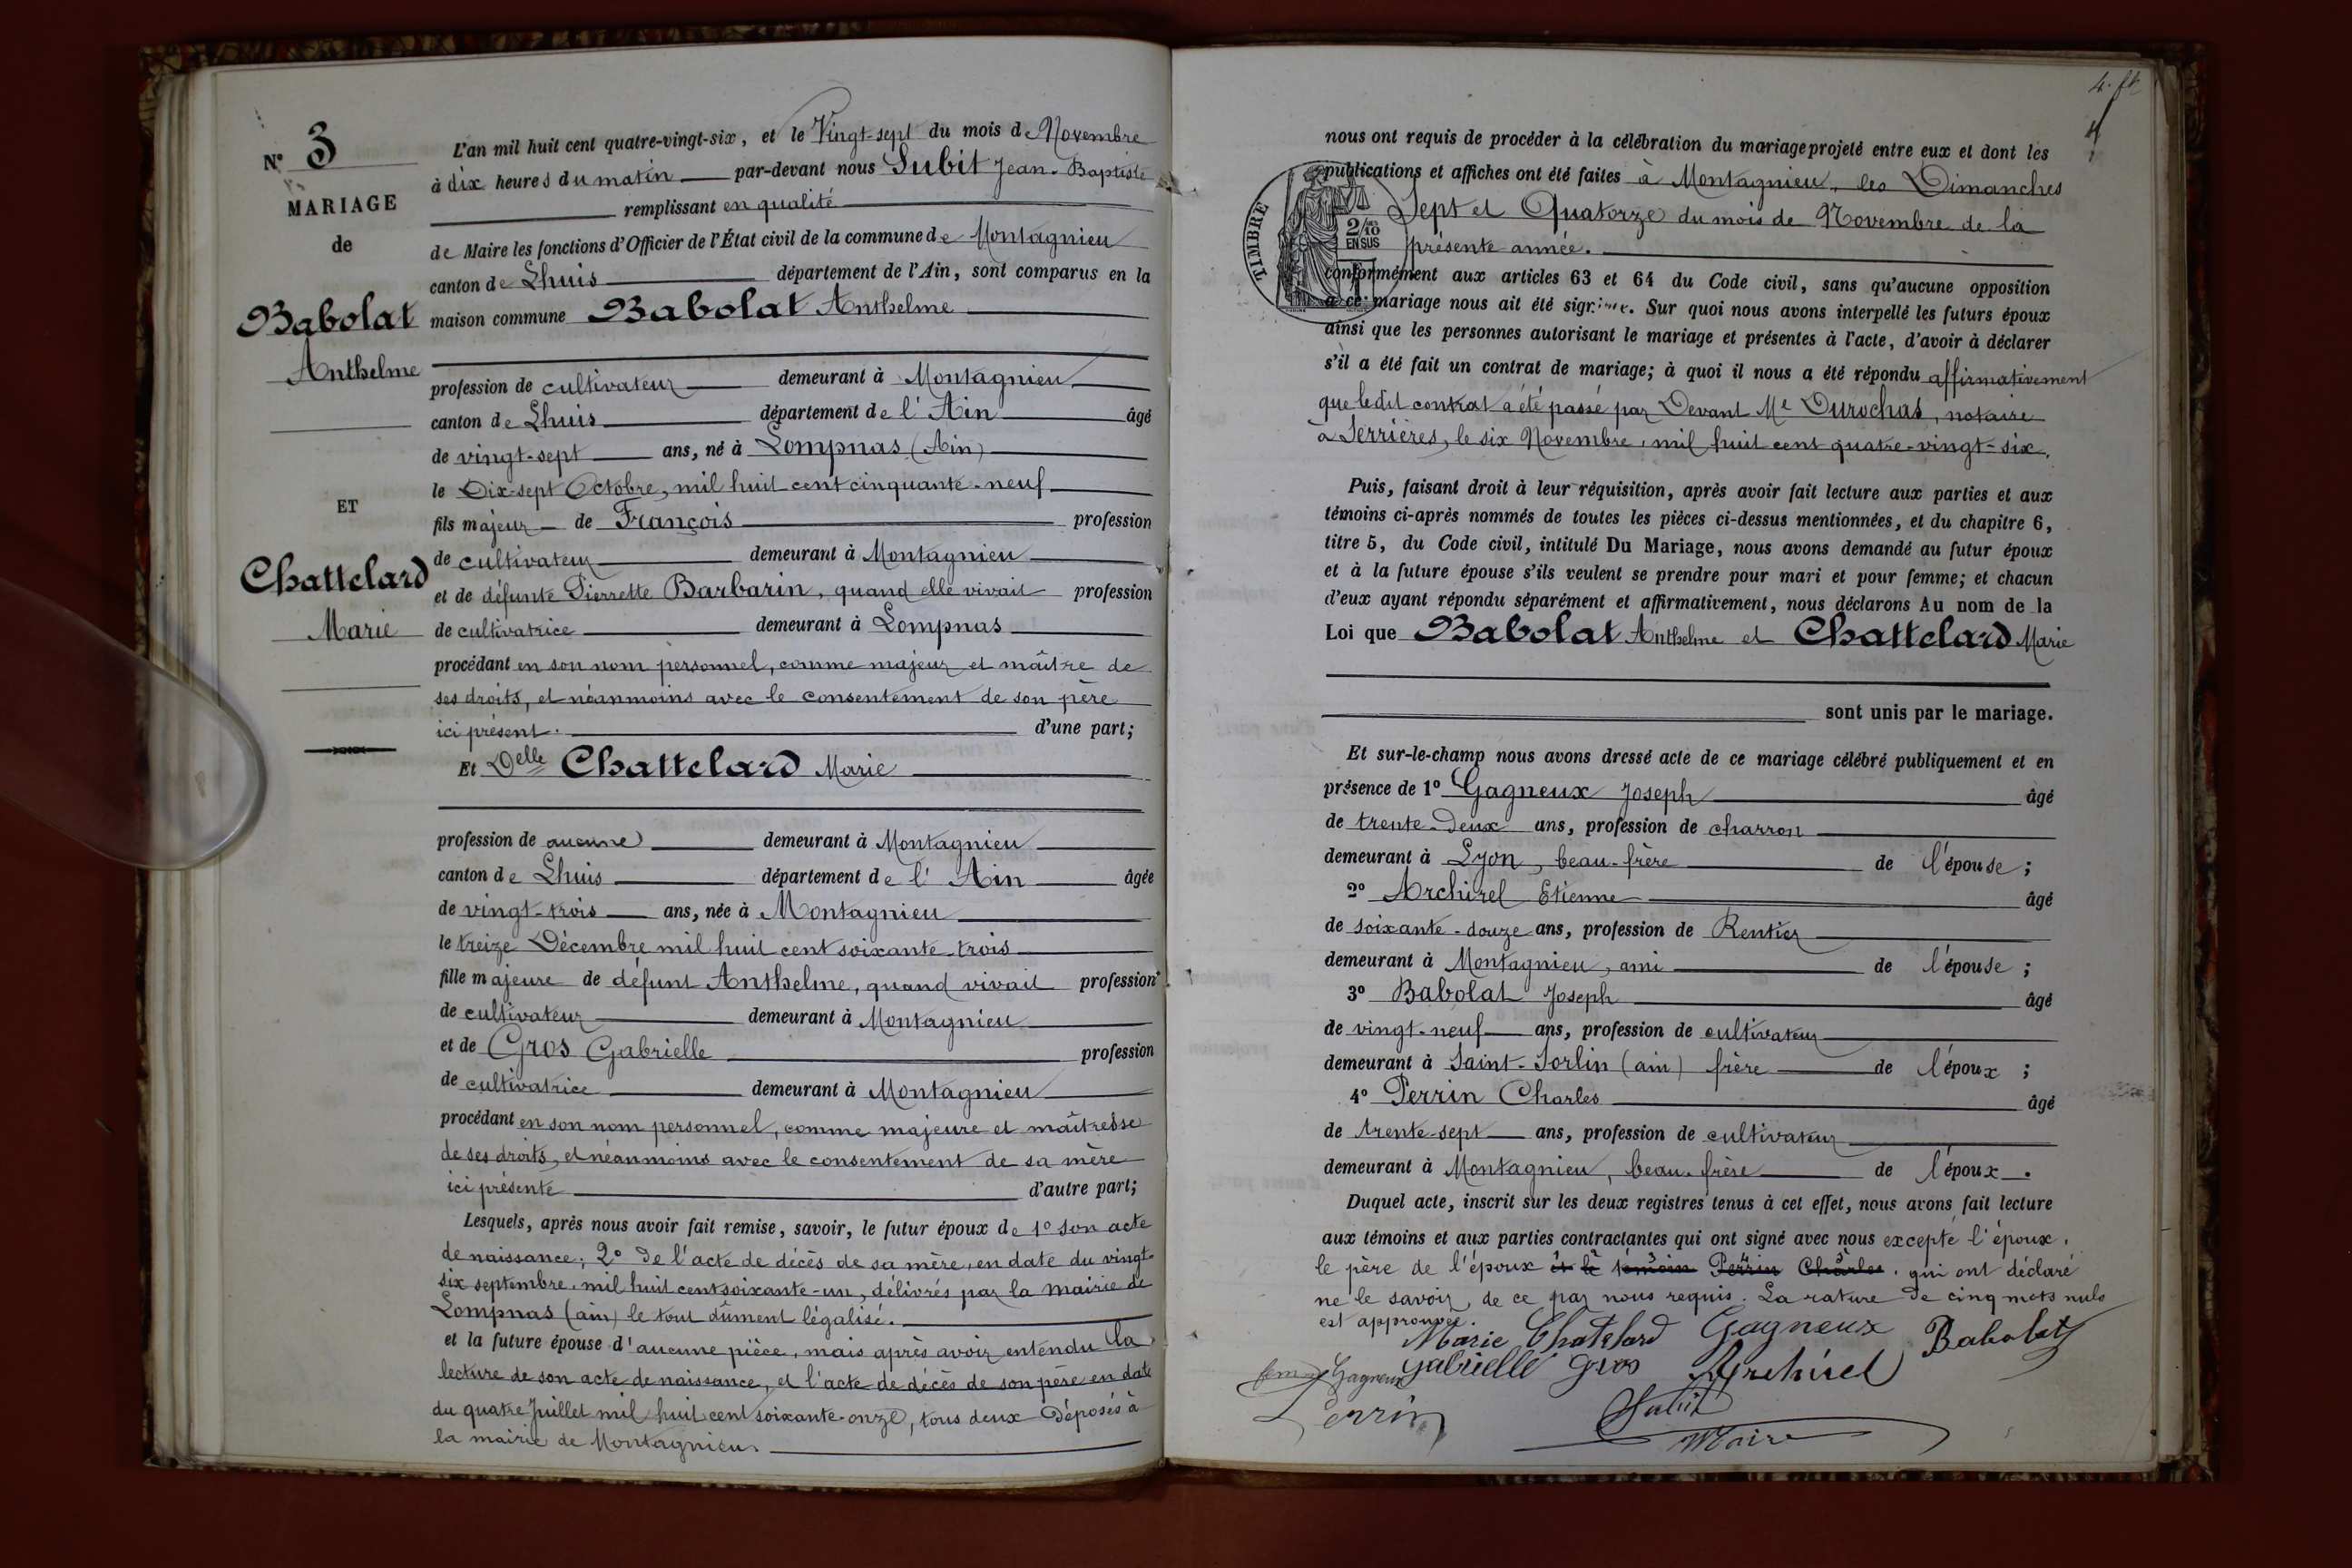 N° 3
MARIAGE
de
Babolat
Anthelme
ET
Chattelard
Marie
L'an mil huit cent quatre-vingt-six, et le Vingt-sept du mois de Novembre
à dix heures du matin par-devant nous Subit Jean-Baptiste
remplissant en qualité
de Maire les fonctions d'Officier de l'État civil de la commune de Montagnieu
canton de Lhuis département de l'Ain, sont comparus en la
maison commune Babolat Anthelme
profession de cultivateur demeurant à Montagnieu
canton de Lhuis département de l'Ain âgé
de vingt-sept ans, né à Lompnas (Ain)
le Dix-sept Octobre, mil huit cent cinquante-neuf
fils majeur de François profession
de cultivateur demeurant à Montagnieu
et de défunte Pierrette Barbarin, quand elle vivait profession
de cultivatrice demeurant à Lompnas
procédant en son nom personnel, comme majeur et maître de
ses droits, et néanmoins avec le consentement de son père
ici présent. d'une part;
Et Delle Chattelard Marie
profession de aucune demeurant à Montagnieu
canton de Lhuis département de l'Ain âgée
de vingt-trois ans, née à Montagnieu
le treize Décembre mil huit cent soixante-trois
fille majeure de défunt Anthelme, quand vivait profession
de cultivateur demeurant à Montagnieu
et de Gros Gabrielle profession
de cultivatrice demeurant à Montagnieu
procédant en son nom personnel, comme majeure et maîtresse
de ses droits, et néanmoins avec le consentement de sa mère
ici présente d'autre part;
Lesquels, après nous avoir fait remise, savoir, le futur époux de 1° son acte
de naissance; 2° de l'acte de décès de sa mère, en date du vingt-
six septembre mil huit cent soixante-un, délivrés par la mairie de
Lompnas (ain) le tout dûment légalisé.
et la future épouse d'aucune pièce, mais après avoir entendu la
lecture de son acte de naissance, et l'acte de décès de son père en date
du quatre Juillet mil huit cent soixante-onze, tous deux déposés à
la mairie de Montagnieu.
4.
nous ont requis de procéder à la célébration du mariage projeté entre eux et dont les
publications et affiches ont été faites à Montagnieu, les Dimanches
Sept et Quatorze du mois de Novembre de la
présente année.
TIMBRE
2/10
EN SUS
conformément aux articles 63 et 64 du Code civil, sans qu'aucune opposition
à ce mariage nous ait été signifiée. Sur quoi nous avons interpellé les futurs époux
ainsi que les personnes autorisant le mariage et présentes à l'acte, d'avoir à déclarer
s'il a été fait un contrat de mariage; à quoi il nous a été répondu affirmativement
que ledit contrat a été passé par Devant Me Durochas, notaire
à Serrières, le six Novembre, mil huit cent quatre-vingt-six.
Puis, faisant droit à leur réquisition, après avoir fait lecture aux parties et aux
témoins ci-après nommés de toutes les pièces ci-dessus mentionnées, et du chapitre 6,
titre 5, du Code civil, intitulé Du Mariage, nous avons demandé au futur époux
et à la future épouse s'ils veulent se prendre pour mari et pour femme; et chacun
d'eux ayant répondu séparément et affirmativement, nous déclarons Au nom de la
Loi que Babolat Anthelme et Chattelard Marie
sont unis par le mariage.
Et sur-le-champ nous avons dressé acte de ce mariage célébré publiquement et en
présence de 1° Gagneux Joseph âgé
de trente-deux ans, profession de charron
demeurant à Lyon, beau-frère de l'épouse;
2° Archirel Etienne âgé
de soixante-douze ans, profession de Rentier
demeurant à Montagnieu, ami de l'épouse;
3° Babolat Joseph âgé
de vingt-neuf ans, profession de cultivateur
demeurant à Saint-Sorlin (ain) frère de l'époux;
4° Perrin Charles âgé
de trente-sept ans, profession de cultivateur
demeurant à Montagnieu, beau-frère de l'époux.
Duquel acte, inscrit sur les deux registres tenus à cet effet, nous avons fait lecture
aux témoins et aux parties contractantes qui ont signé avec nous excepté l'époux,
le père de l'époux et le témoin Perrin Charles. qui ont déclaré
ne le savoir, de ce par nous requis. La rature de cinq mots nuls
est approuvée.
Marie Chatelard Gagneux Babolat
femme Gagneux Gabrielle Gros Archirel
Perrin Subit
Maire